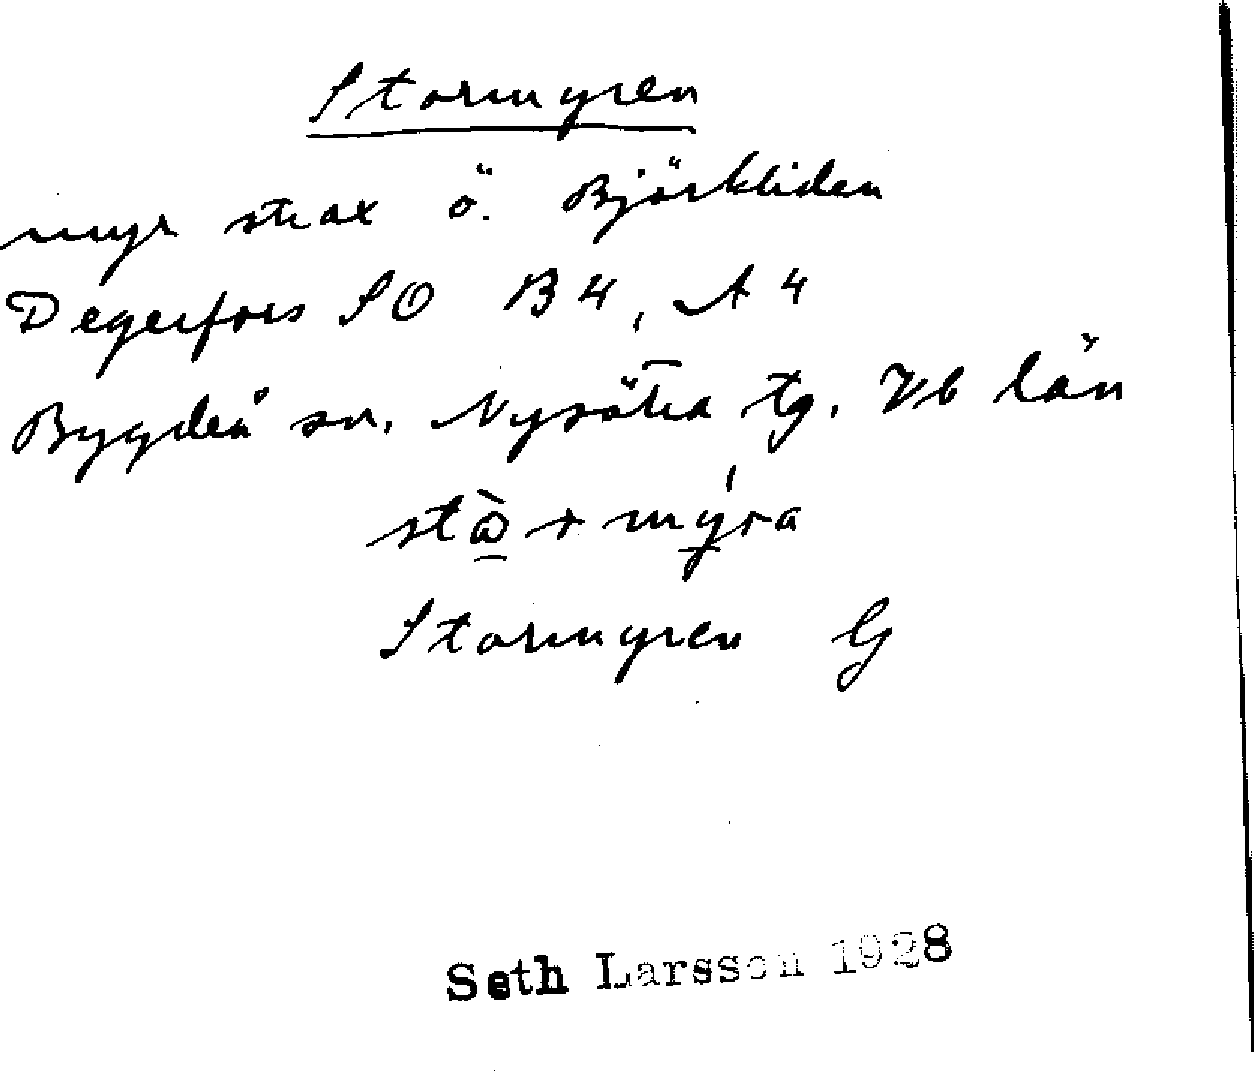 Stormyren
myr strax ö. Björkliden
Degerfors SO B4, A4
Bygdeå sn. Nysätra tg. Vb län
Stormyren G
Seth Larsson 1928